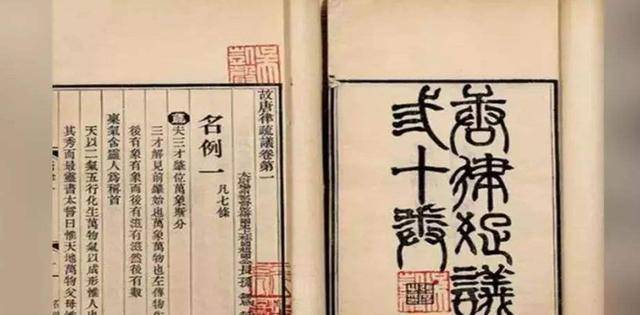 唐律疏議
十卷
故唐律疏議卷第一
長孫
名例一 凡七條
夫三才肇位萬象斯分
三才解見前肇始也萬象萬物也左傳物生
後有象有象而後有滋有滋然後有數
稟氣含靈人爲稱首
天以二氣五行化生萬物氣以成形惟人也
其秀而最靈書太誓曰惟天地萬物父母